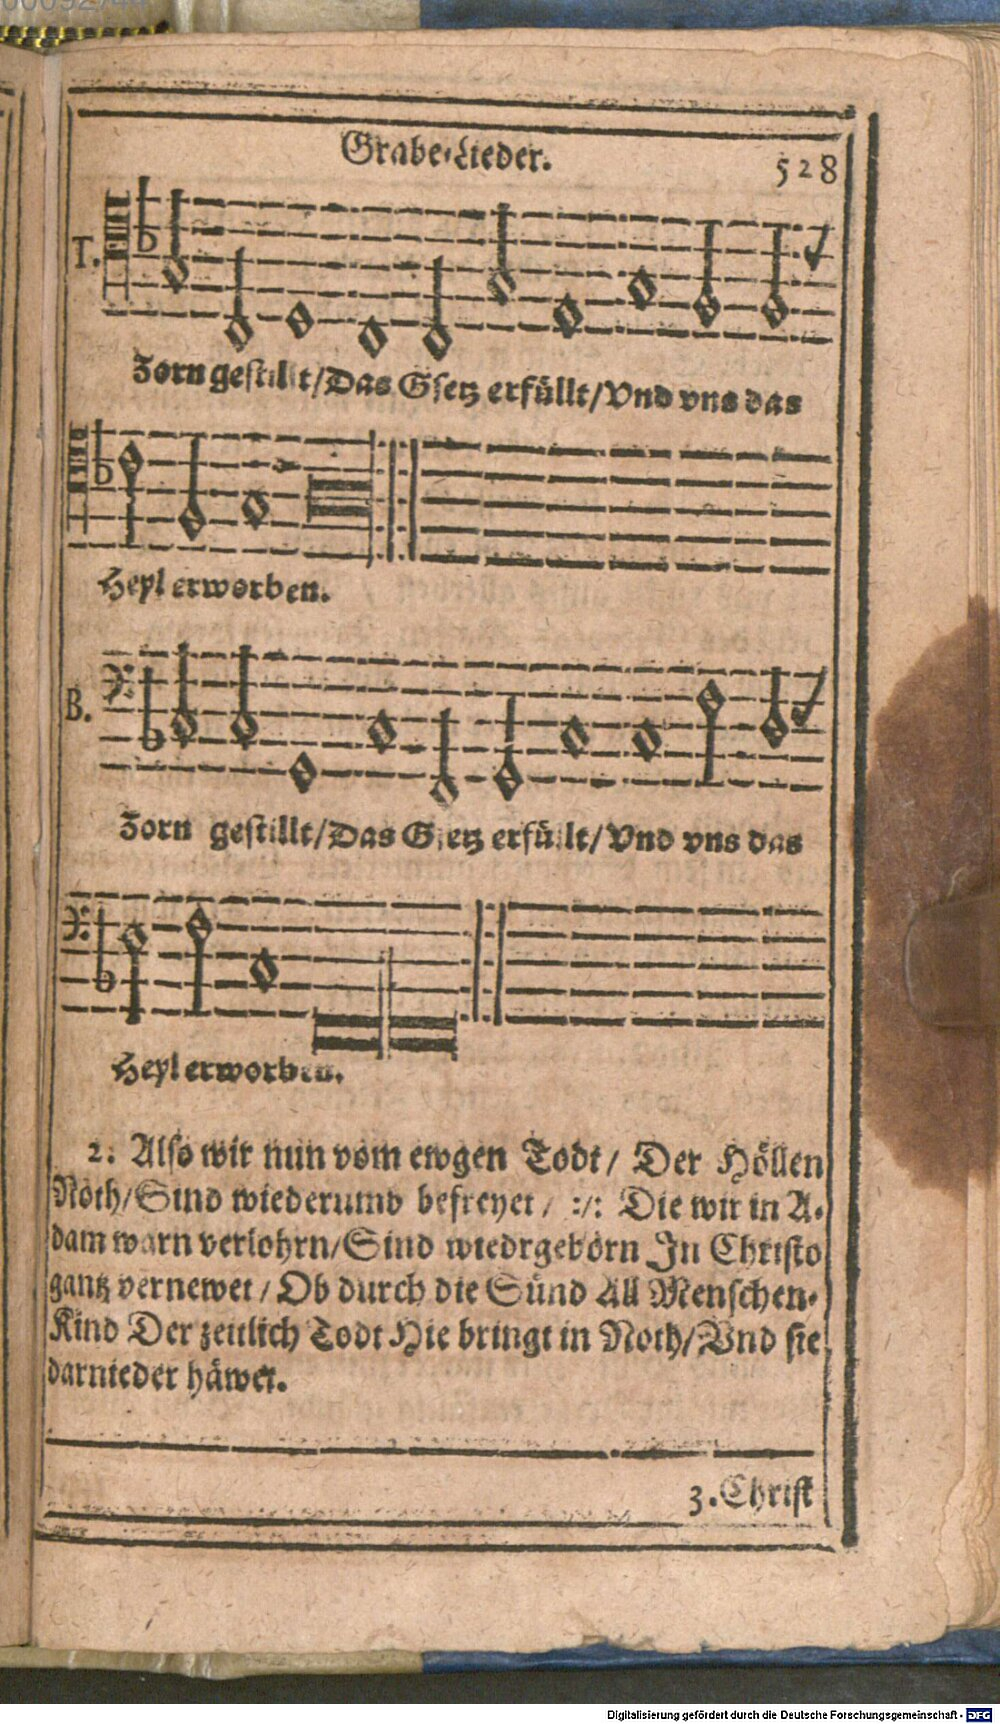 Grabe-Lieder.
528
T.
Zorn gestillt/Das Gsetz erfüllt/Vnd vns das
Heyl erworben.
B.
Zorn gestillt/Das Gsetz erfüllt/Vnd vns das
Heyl erworben.
2. Also wir nun vom ewgen Todt/ Der Höllen
Noth/Sind wiederumb befreyet/ :/: Die wir in A-
dam warn verlohrn/Sind wiedrgeborn In Christo
gantz vernewet/Ob durch die Sünd All Menschen-
Kind Der zeitlich Todt Hie bringt in Noth/Vnd sie
darnieder häwet.
3. Christ
Digitalisierung gefördert durch die Deutsche Forschungsgemeinschaft - DFG